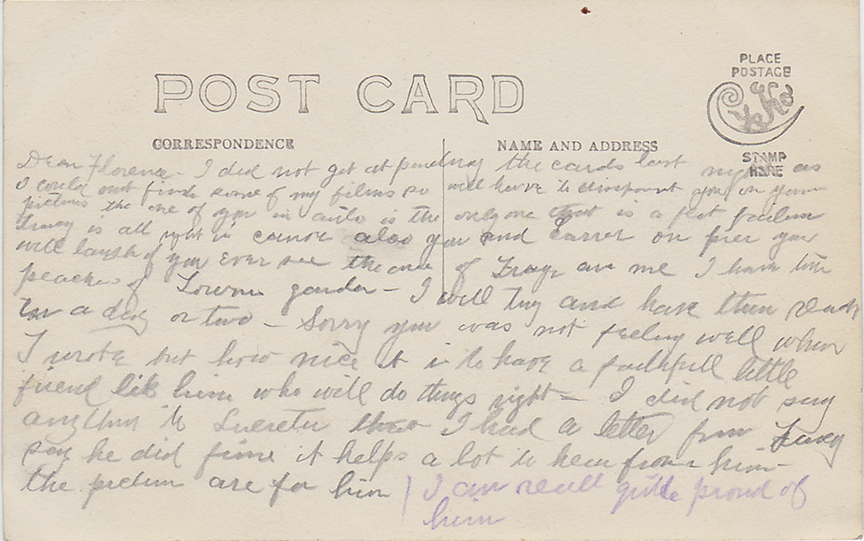 PLACE
POSTAGE
POST CARD
STAMP
HERE
CORRESPONDENCE
NAME AND ADDRESS
Dear Florence - I did not get at printing the cards last night as
I could not find some of my films so will have to disappoint you on your
pictures the one of you in auto is the only one that is a
is all right in canoe also you and on pier you
will laugh if you ever see the one of and me I have
peaches of garden - I will try and have them ready
in a day or two - Sorry you was not feeling well when
I wrote but how nice it is to have a faithfull little
friend like him who will do things right - I did not say
anything to I had a letter from
say he did fine it helps a lot to hear from him -
the picture are for him I am quite proud of
him